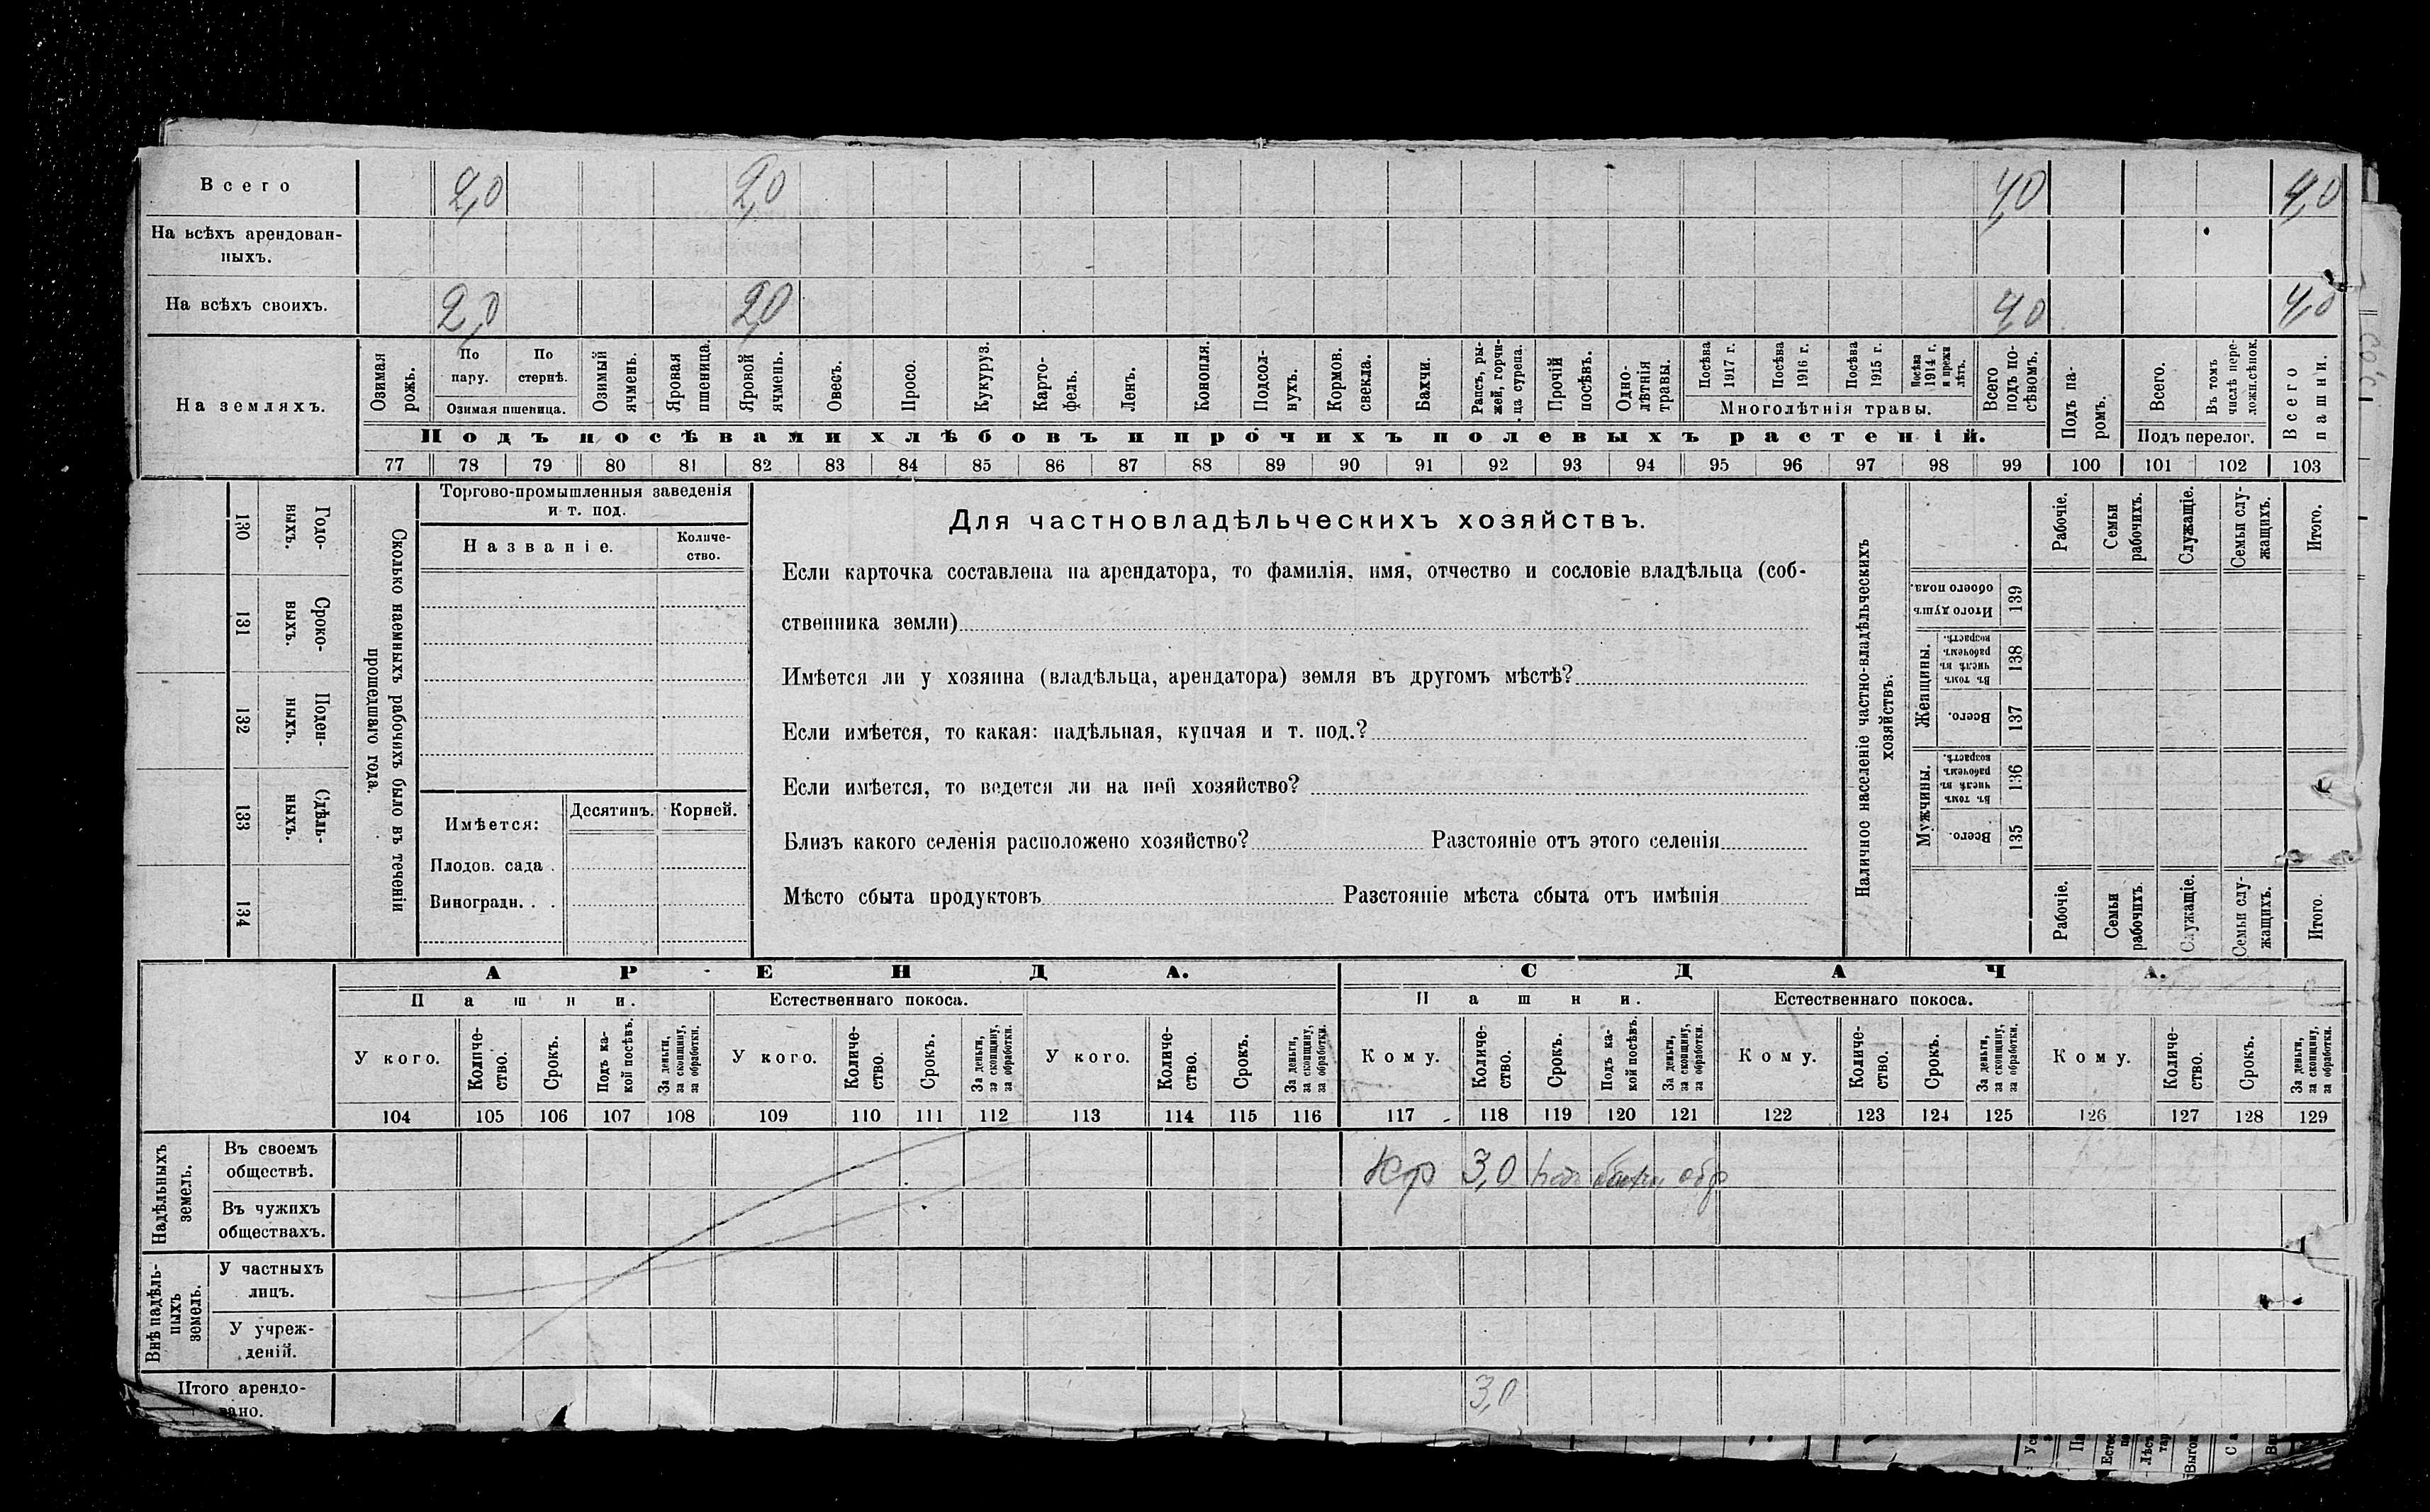 Всего 2,0 2,0 4,0 4,0
На всѣхъ арендован-
ныхъ.
На всѣхъ своихъ. 2,0 2,0 4,0 4,0
На земляхъ.
Озимая рожь.
По пару.
По стернѣ.
Озимая пшеница.
Озимый ячмень.
Яровая пшеница.
Яровой ячмень.
Овесъ.
Просо.
Кукуруз.
Карто-
фель.
Ленъ.
Конопля.
Подсол-
нухъ.
Кормов. свекла.
Бахчи.
Рапсъ, ры-
жей, горчи-
ца сурепа.
Прочій посѣвъ.
Одно-
лѣтнія травы.
Посѣва 1917 г.
Посѣва 1916 г.
Посѣва 1915 г.
Посѣва 1914 г. и прежн лѣтъ.
Многолѣтнія травы.
Всего подъ по-
сѣвомъ.
Подъ па-
ромъ.
Всего.
Въ томъ числѣ пере-
ложн.сѣнок.
Подъ перелог.
Всего пашни.
Подъ посѣвами хлѣбовъ и прочихъ полевыхъ растеній.
77 78 79 80 81 82 83 84 85 86 87 88 89 90 91 92 93 94 95 96 97 98 99 100 101 102 103
130 131 132 133 134
Годо-
выхъ.
Сроко-
выхъ.
Поден-
ныхъ.
Сдѣль-
ныхъ.
Сколько наемныхъ рабочихъ было въ теченіи
прошедшаго года.
Торгово-промышленныя заведенія
и т. под.
Названіе.
Количе-
ство.
Имѣется: Десятинъ. Корней.
Плодов. сада .
Виноградн. . .
Для частновладѣльческихъ хозяйствъ.
Если карточка составлена на арендатора, то фамилія, имя, отчество и сословіе владѣльца (соб-
ственника земли)
Имѣется ли у хозяина (владѣльца, арендатора) земля въ другомъ мѣстѣ?
Если имѣется, то какая: надѣльная, купчая и т. под.?
Если имѣется, то ведется ли на ней хозяйство?
Близъ какого селенія расположено хозяйство? Разстояніе отъ этого селенія
Мѣсто сбыта продуктовъ Разстояніе мѣста сбыта отъ имѣнія
Наличное населеніе частно-владѣльческихъ
хозяйствъ.
Рабочіе.
Семьи рабочихъ.
Служащіе.
Семьи слу-
жащихъ.
Итого.
Итого душъ обоего пола. 139
Женщины.
Въ томъ числѣ въ рабочемъ возрастѣ. 138
Всего. 137
Мужчины.
Въ томъ числѣ въ рабочемъ возрастѣ. 136
Всего. 135
Рабочіе.
Семьи рабочихъ.
Служащіе.
Семьи слу-
жащихъ.
Итого.
АРЕНДА. СДАЧА.
Пашни. Естественнаго покоса. Пашни. Естественнаго покоса.
У кого.
Количе-
ство.
Срокъ.
Подъ ка-
кой посѣвъ.
За деньги, за скопщину, за обработки.
У кого.
Количе-
ство.
Срокъ.
За деньги, за скопщину, за обработки.
У кого.
Количе-
ство.
Срокъ.
За деньги, за скопщину, за обработки.
Кому.
Количе-
ство.
Срокъ.
Подъ ка-
кой посѣвъ.
За деньги, за скопщину, за обработки.
Кому.
Количе-
ство.
Срокъ.
За деньги, за скопщину, за обработки.
Кому.
Количе-
ство.
Срокъ.
За деньги, за скопщину, за обработки.
104 105 106 107 108 109 110 111 112 113 114 115 116 117 118 119 120 121 122 123 124 125 126 127 128 129
Надѣльныхъ земель.
Въ своемъ
обществѣ. Кр 3,0 обр
Въ чужихъ
обществахъ.
Внѣ надѣль-
ныхъ земель.
У частныхъ
лицъ.
У учреж-
деній.
Итого арендо-
вано. 3,0